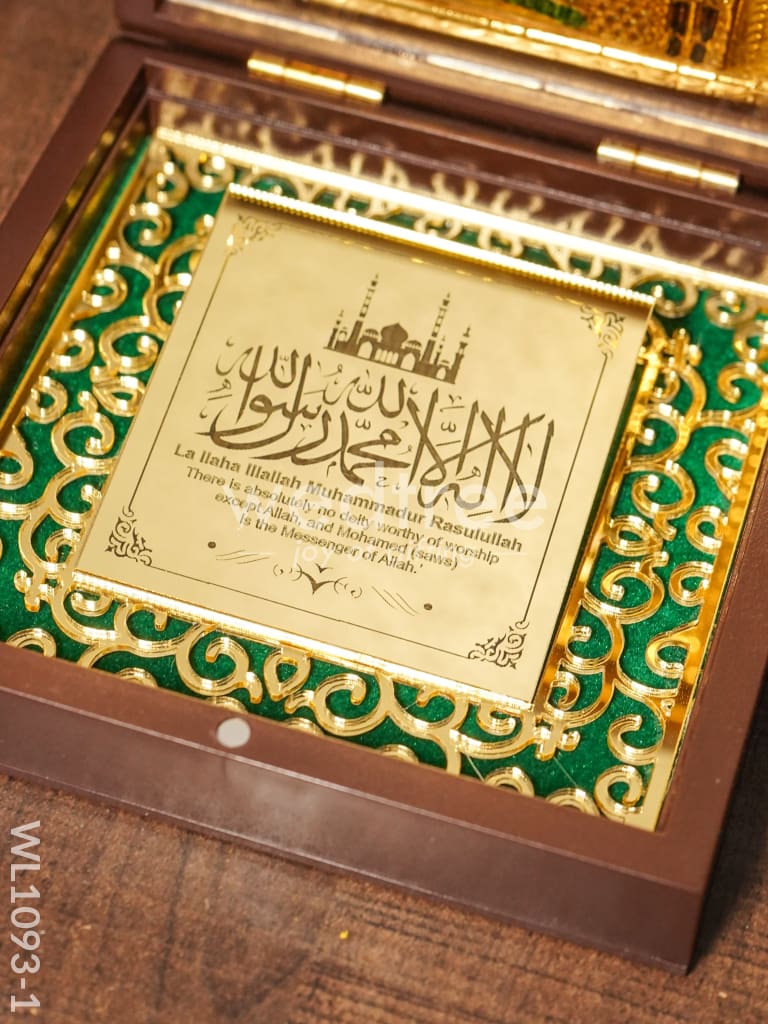 لا اله الا الله
محمد رسول الله
La Ilaha Illallah Muhammadur Rasulullah
There is absolutely no deity worthy of worship
except Allah, and Mohamed (saws)
is the Messenger of Allah.'
wedtree
WL1093-1